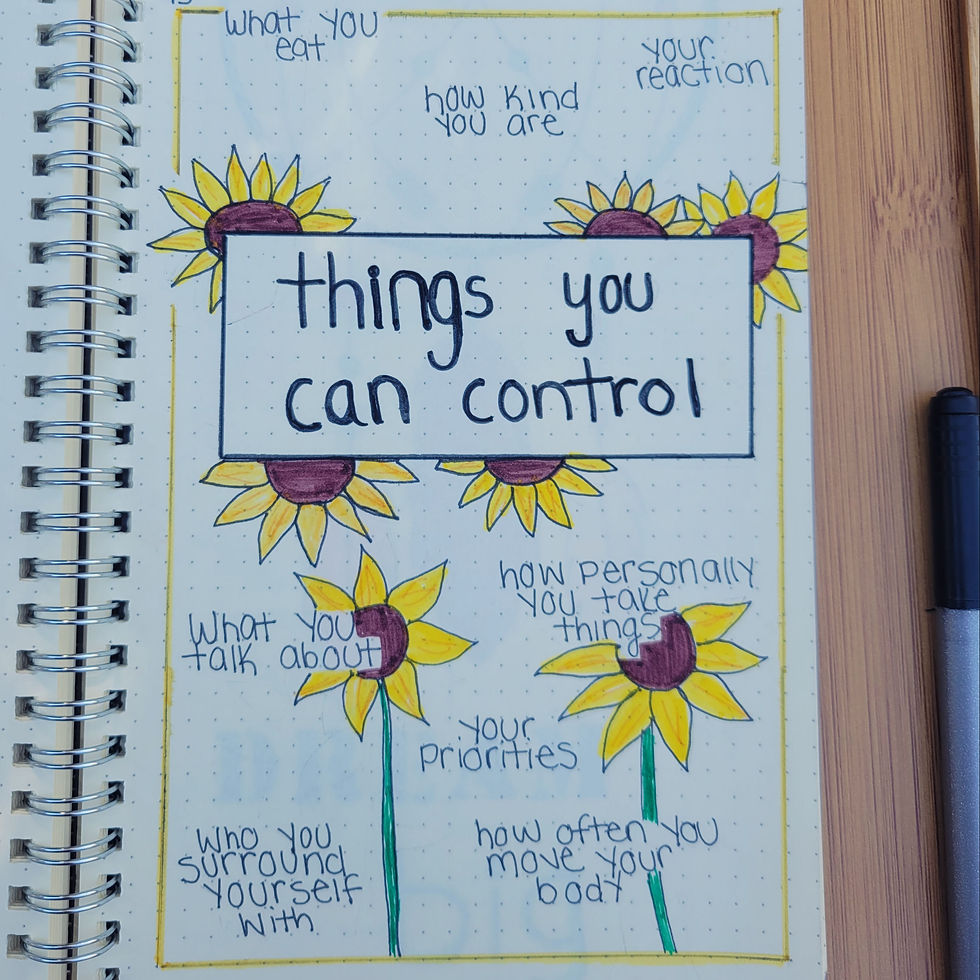 What you
eat
your
reaction
how kind
you are
things you
can control
how personally
you take
things
What you
talk about
your
priorities
Who you
surround
yourself
with
how often you
move your
body